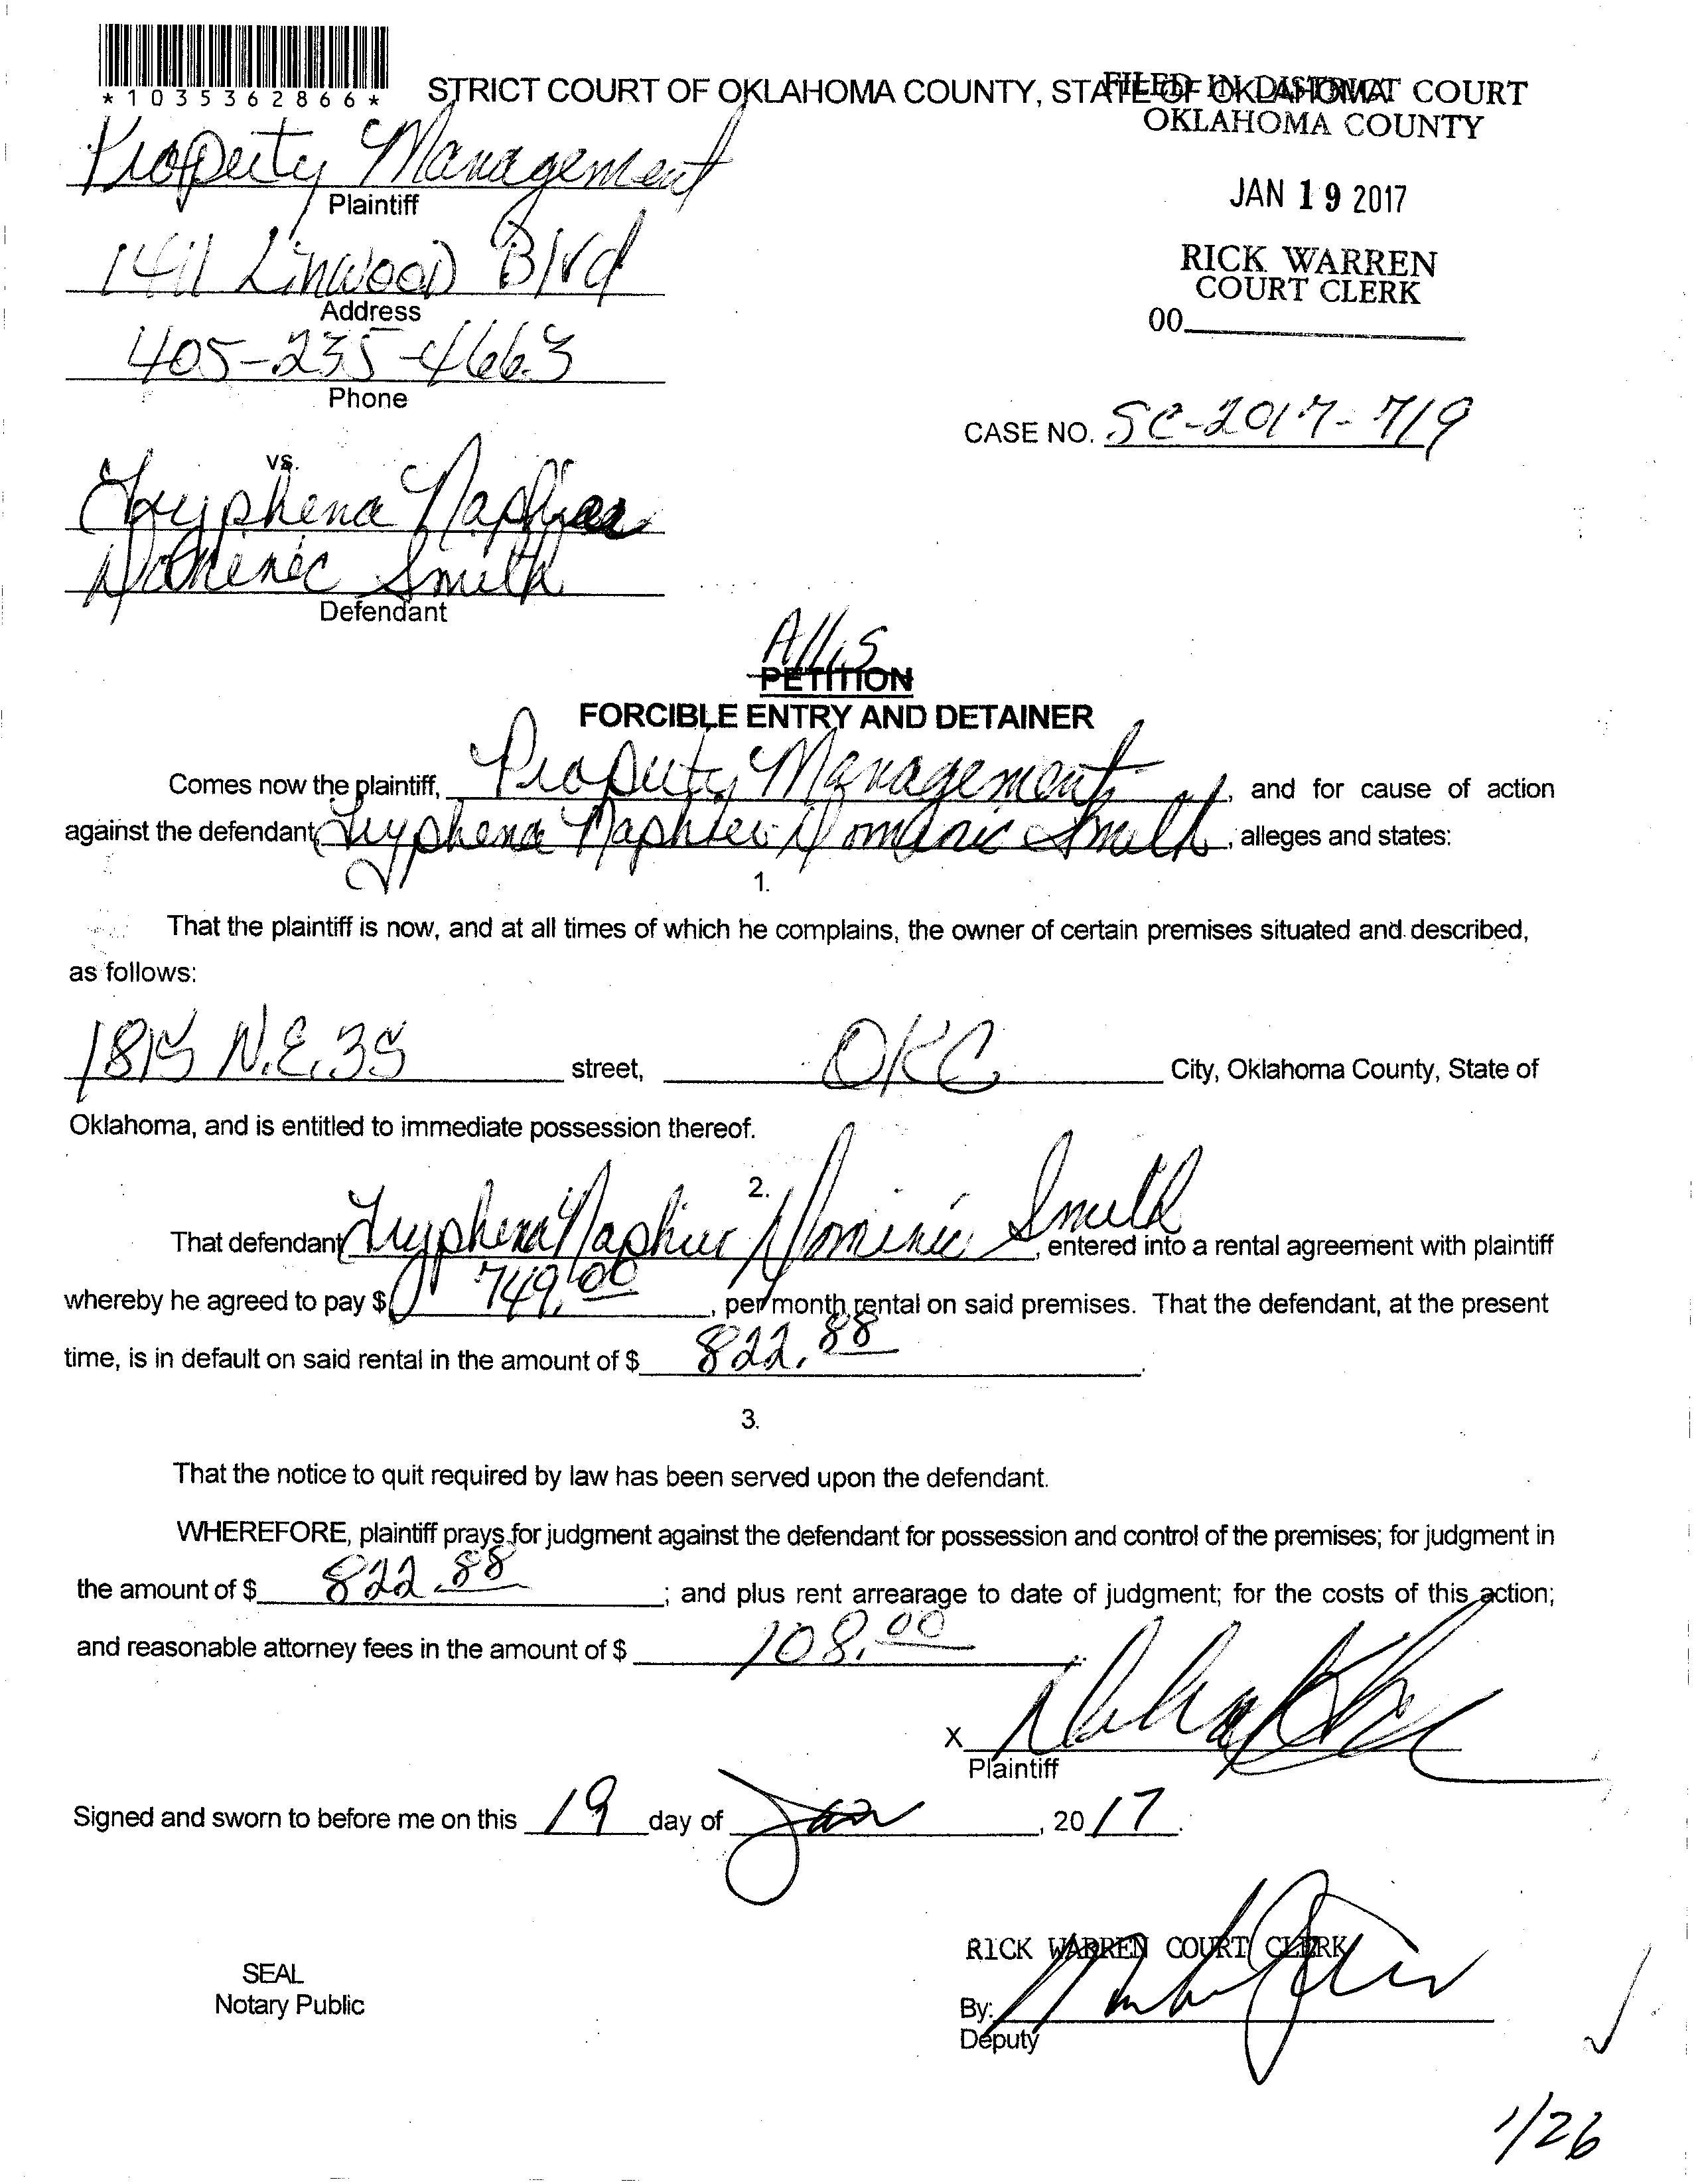 *1035362866*
STRICT COURT OF OKLAHOMA COUNTY, STATE OF OKLAHOMA
FILED IN DISTRICT COURT
OKLAHOMA COUNTY
JAN 19 2017
RICK WARREN
COURT CLERK
00
Property Management
Plaintiff
1411 Linwood Blvd
Address
405-235-4663
Phone
CASE NO. SC-2017-719
vs.
Tryphena
Domenic Smith
Defendant
PETITION
FORCIBLE ENTRY AND DETAINER
Comes now the plaintiff, Property Management, and for cause of action
against the defendant, Tryphena Naphier Domenic Smith, alleges and states:
1.
That the plaintiff is now, and at all times of which he complains, the owner of certain premises situated and described,
as follows:
1815 N.E. 35 street, OKC City, Oklahoma County, State of
Oklahoma, and is entitled to immediate possession thereof.
2.
That defendant Tryphena Naphier Domenic Smith, entered into a rental agreement with plaintiff
whereby he agreed to pay $ 749.00, per month rental on said premises. That the defendant, at the present
time, is in default on said rental in the amount of $ 822.88.
3.
That the notice to quit required by law has been served upon the defendant.
WHEREFORE, plaintiff prays for judgment against the defendant for possession and control of the premises; for judgment in
the amount of $ 822.88; and plus rent arrearage to date of judgment; for the costs of this action;
and reasonable attorney fees in the amount of $ 108.00.
X
Plaintiff
Signed and sworn to before me on this 19 day of Jan, 2017.
RICK WARREN COURT CLERK
SEAL
Notary Public
By:
Deputy
1/26